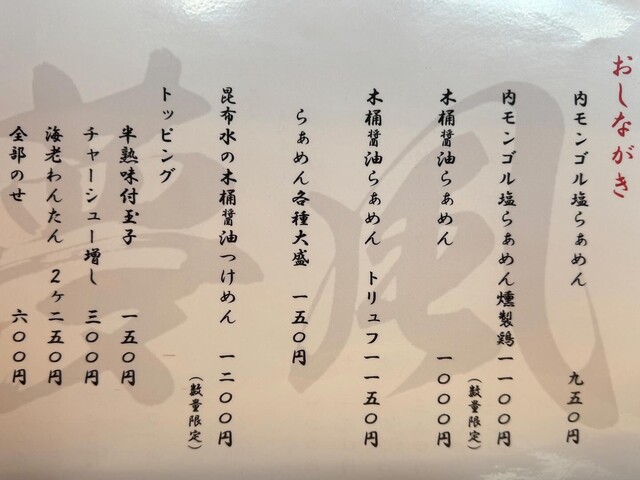 おしながき
内モンゴル塩らぁめん 九五〇円
内モンゴル塩らぁめん燻製鶏 一一〇〇円
（数量限定）
木桶醤油らぁめん 一〇〇〇円
木桶醤油らぁめん トリュフ 一一五〇円
らぁめん各種大盛 一五〇円
昆布水の木桶醤油つけめん 一二〇〇円
（数量限定）
トッピング
半熟味付玉子 一五〇円
チャーシュー増し 三〇〇円
海老わんたん 2ヶ 二五〇円
全部のせ 六〇〇円
夢風